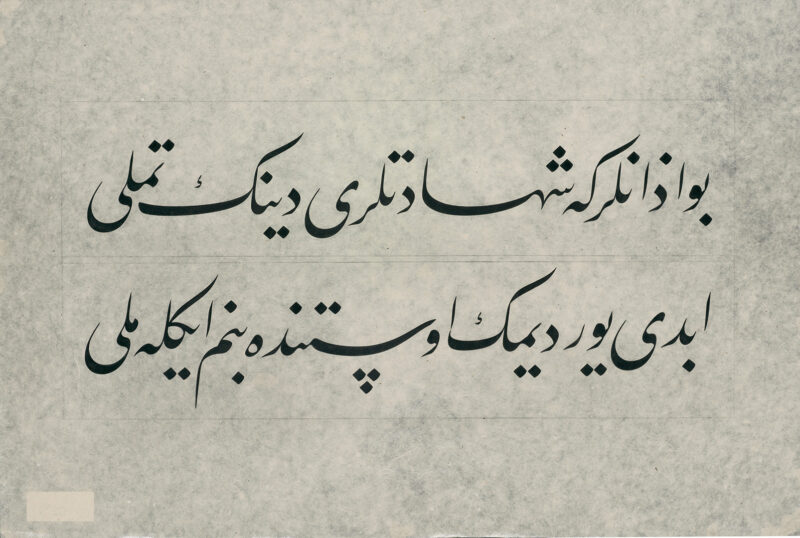 بو اذانلر که شهادتلری دینك تملی
ابدی یوردیمك اوستنده بنم ایكله ملی